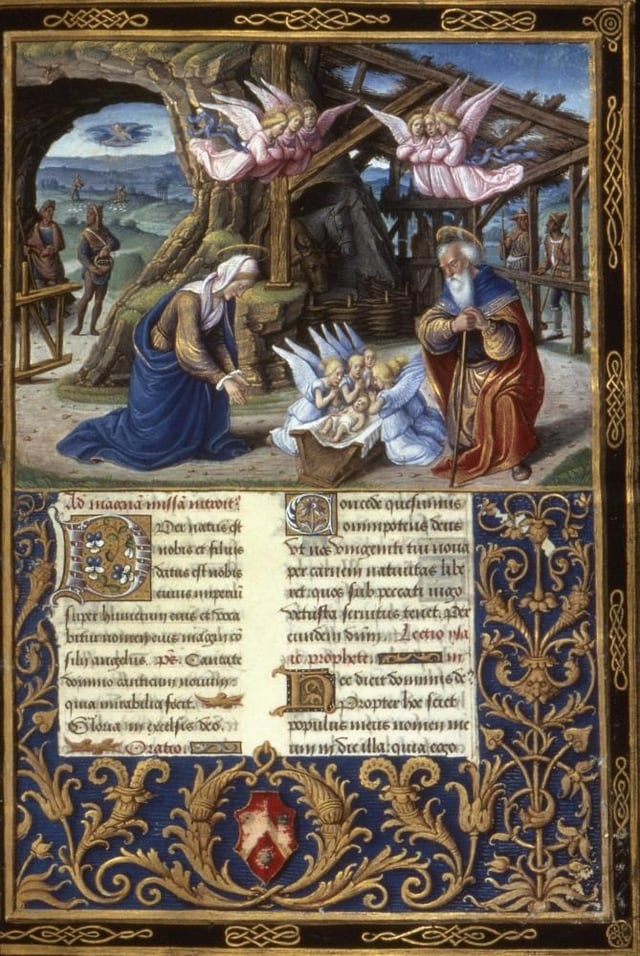 Ad magnā missā introit⁹
Puer natus est
nobis et filius
datus est nobis
cuius imperiū
super humerum eius et voca
bitur nomen eius magni cō
silij angelus. ps. Cantate
domino canticum nouum:
quia mirabilia fecit.
Gloria in excelsis deo.
Oratio
Concede quesumus
omnipotens deus
vt nos vnigeniti tui noua
per carnem natiuitas libe
ret: quos sub peccati iugo
vetusta seruitus tenet. Per
eundem dnm. Lectio ysa
ie prophete.
Hec dicit dominus de⁹
Propter hoc sciet
populus meus nomen me
um in die illa: quia ego